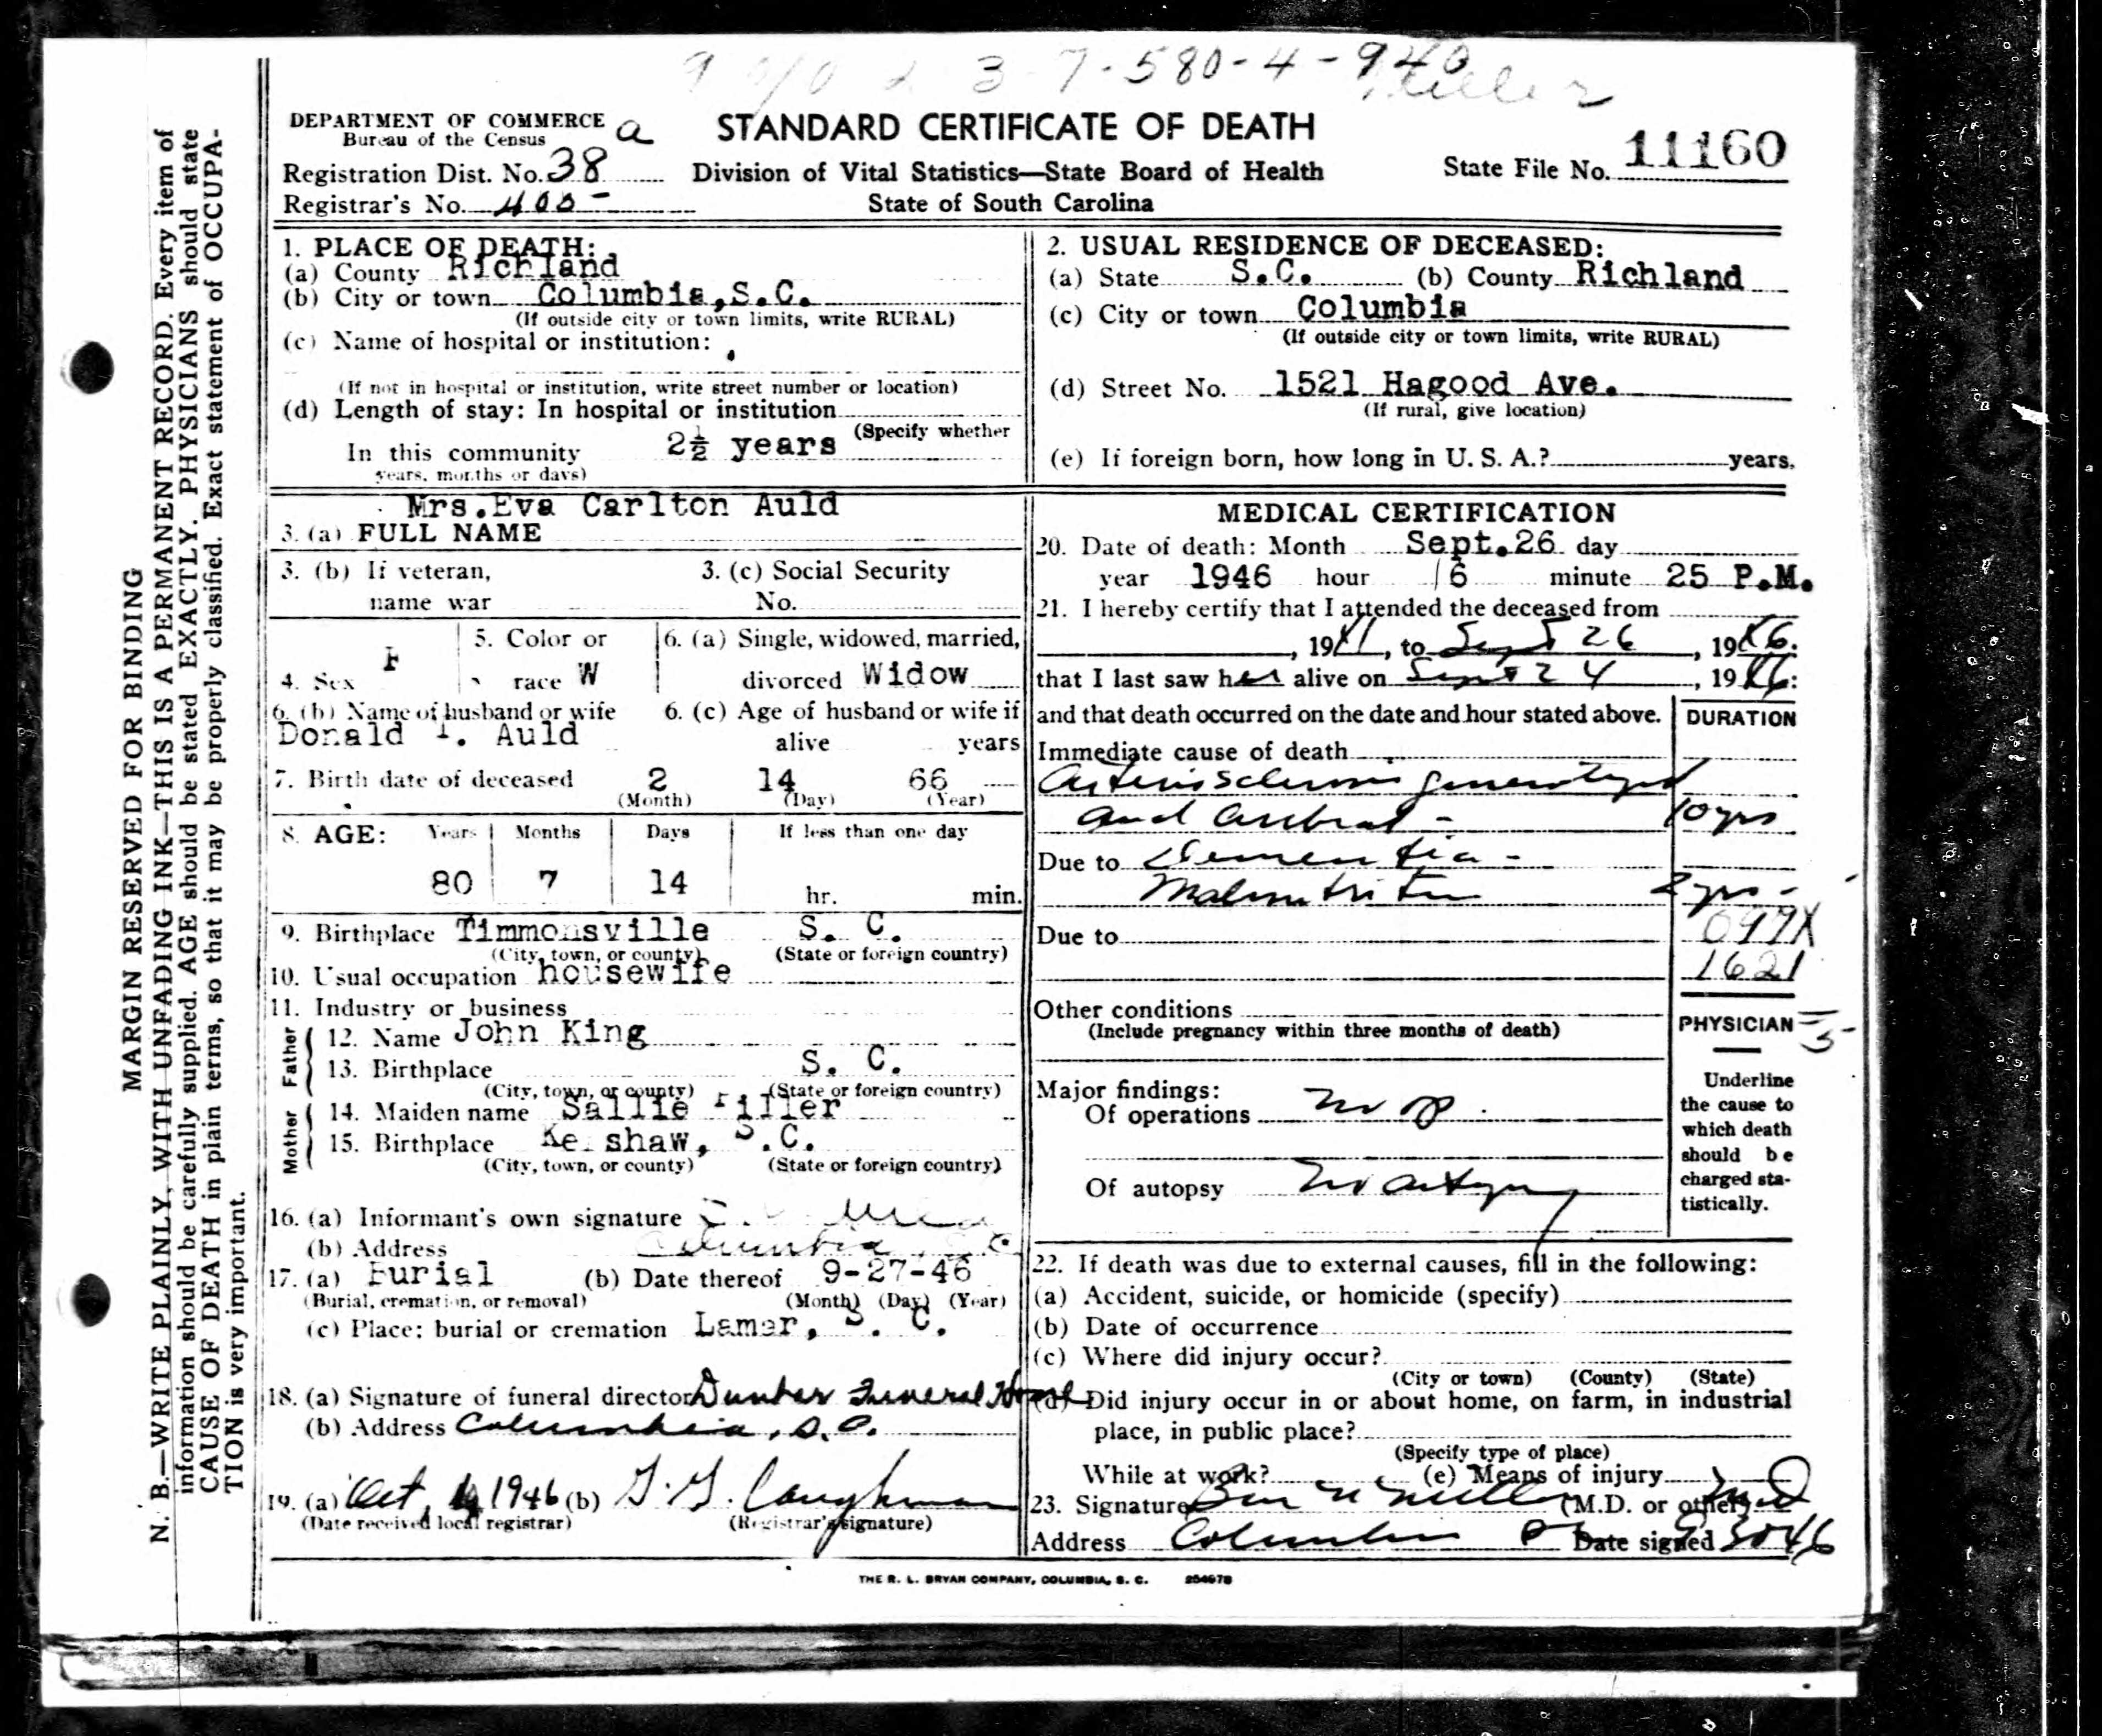 3-7-580-4-940
DEPARTMENT OF COMMERCE
Bureau of the Census
a
STANDARD CERTIFICATE OF DEATH
Registration Dist. No. 38
Division of Vital Statistics—State Board of Health
State File No. 11160
Registrar's No.
State of South Carolina
1. PLACE OF DEATH:
(a) County Richland
(b) City or town Columbia, S.C.
(If outside city or town limits, write RURAL)
(c) Name of hospital or institution:
(If not in hospital or institution, write street number or location)
(d) Length of stay: In hospital or institution
(Specify whether
In this community 2½ years
years, months or days)
2. USUAL RESIDENCE OF DECEASED:
(a) State S.C. (b) County Richland
(c) City or town Columbia
(If outside city or town limits, write RURAL)
(d) Street No. 1521 Hagood Ave.
(If rural, give location)
(e) If foreign born, how long in U. S. A.? years.
Mrs. Eva Carlton Auld
3. (a) FULL NAME
3. (b) If veteran, name war
3. (c) Social Security No.
4. Sex F
5. Color or race W
6. (a) Single, widowed, married, divorced Widow
6. (b) Name of husband or wife
Donald Auld
6. (c) Age of husband or wife if alive years
7. Birth date of deceased 2 14 66
(Month) (Day) (Year)
8. AGE: Years Months Days If less than one day
80 7 14 hr. min.
9. Birthplace Timmonsville S. C.
(City, town, or county) (State or foreign country)
10. Usual occupation housewife
11. Industry or business
Father
12. Name John King
13. Birthplace S. C.
(City, town, or county) (State or foreign country)
Mother
14. Maiden name Sallie
15. Birthplace Kershaw, S.C.
(City, town, or county) (State or foreign country)
16. (a) Informant's own signature
(b) Address Columbia, S.C.
17. (a) Burial (b) Date thereof 9-27-46
(Burial, cremation, or removal) (Month) (Day) (Year)
(c) Place: burial or cremation Lamar, S. C.
18. (a) Signature of funeral director Dunbar Funeral Home
(b) Address Columbia, S.C.
19. (a) Oct, 1946 (b)
(Date received local registrar) (Registrar's signature)
MEDICAL CERTIFICATION
20. Date of death: Month Sept. 26 day
year 1946 hour 6 minute 25 P.M.
21. I hereby certify that I attended the deceased from
, 1941, to Sept 26, 1946:
that I last saw her alive on Sept 24, 1946:
and that death occurred on the date and hour stated above.
DURATION
Immediate cause of death
Arteriosclerosis generalized
and cerebral - 10 yrs
Due to Dementia -
Malnutrition 2 yrs -
097X
Due to
1621
Other conditions
(Include pregnancy within three months of death)
PHYSICIAN
Major findings:
Of operations no op.
Of autopsy no autopsy
Underline
the cause to
which death
should be
charged sta-
tistically.
22. If death was due to external causes, fill in the following:
(a) Accident, suicide, or homicide (specify)
(b) Date of occurrence
(c) Where did injury occur?
(City or town) (County) (State)
(d) Did injury occur in or about home, on farm, in industrial
place, in public place?
(Specify type of place)
While at work? (e) Means of injury
23. Signature Ben (M.D. or other) MD
Address Columbia Date signed 9 30 46
THE R. L. BRYAN COMPANY, COLUMBIA, S. C. 254678
MARGIN RESERVED FOR BINDING
N. B.—WRITE PLAINLY, WITH UNFADING INK—THIS IS A PERMANENT RECORD. Every item of
information should be carefully supplied. AGE should be stated EXACTLY. PHYSICIANS should state
CAUSE OF DEATH in plain terms, so that it may be properly classified. Exact statement of OCCUPA-
TION is very important.